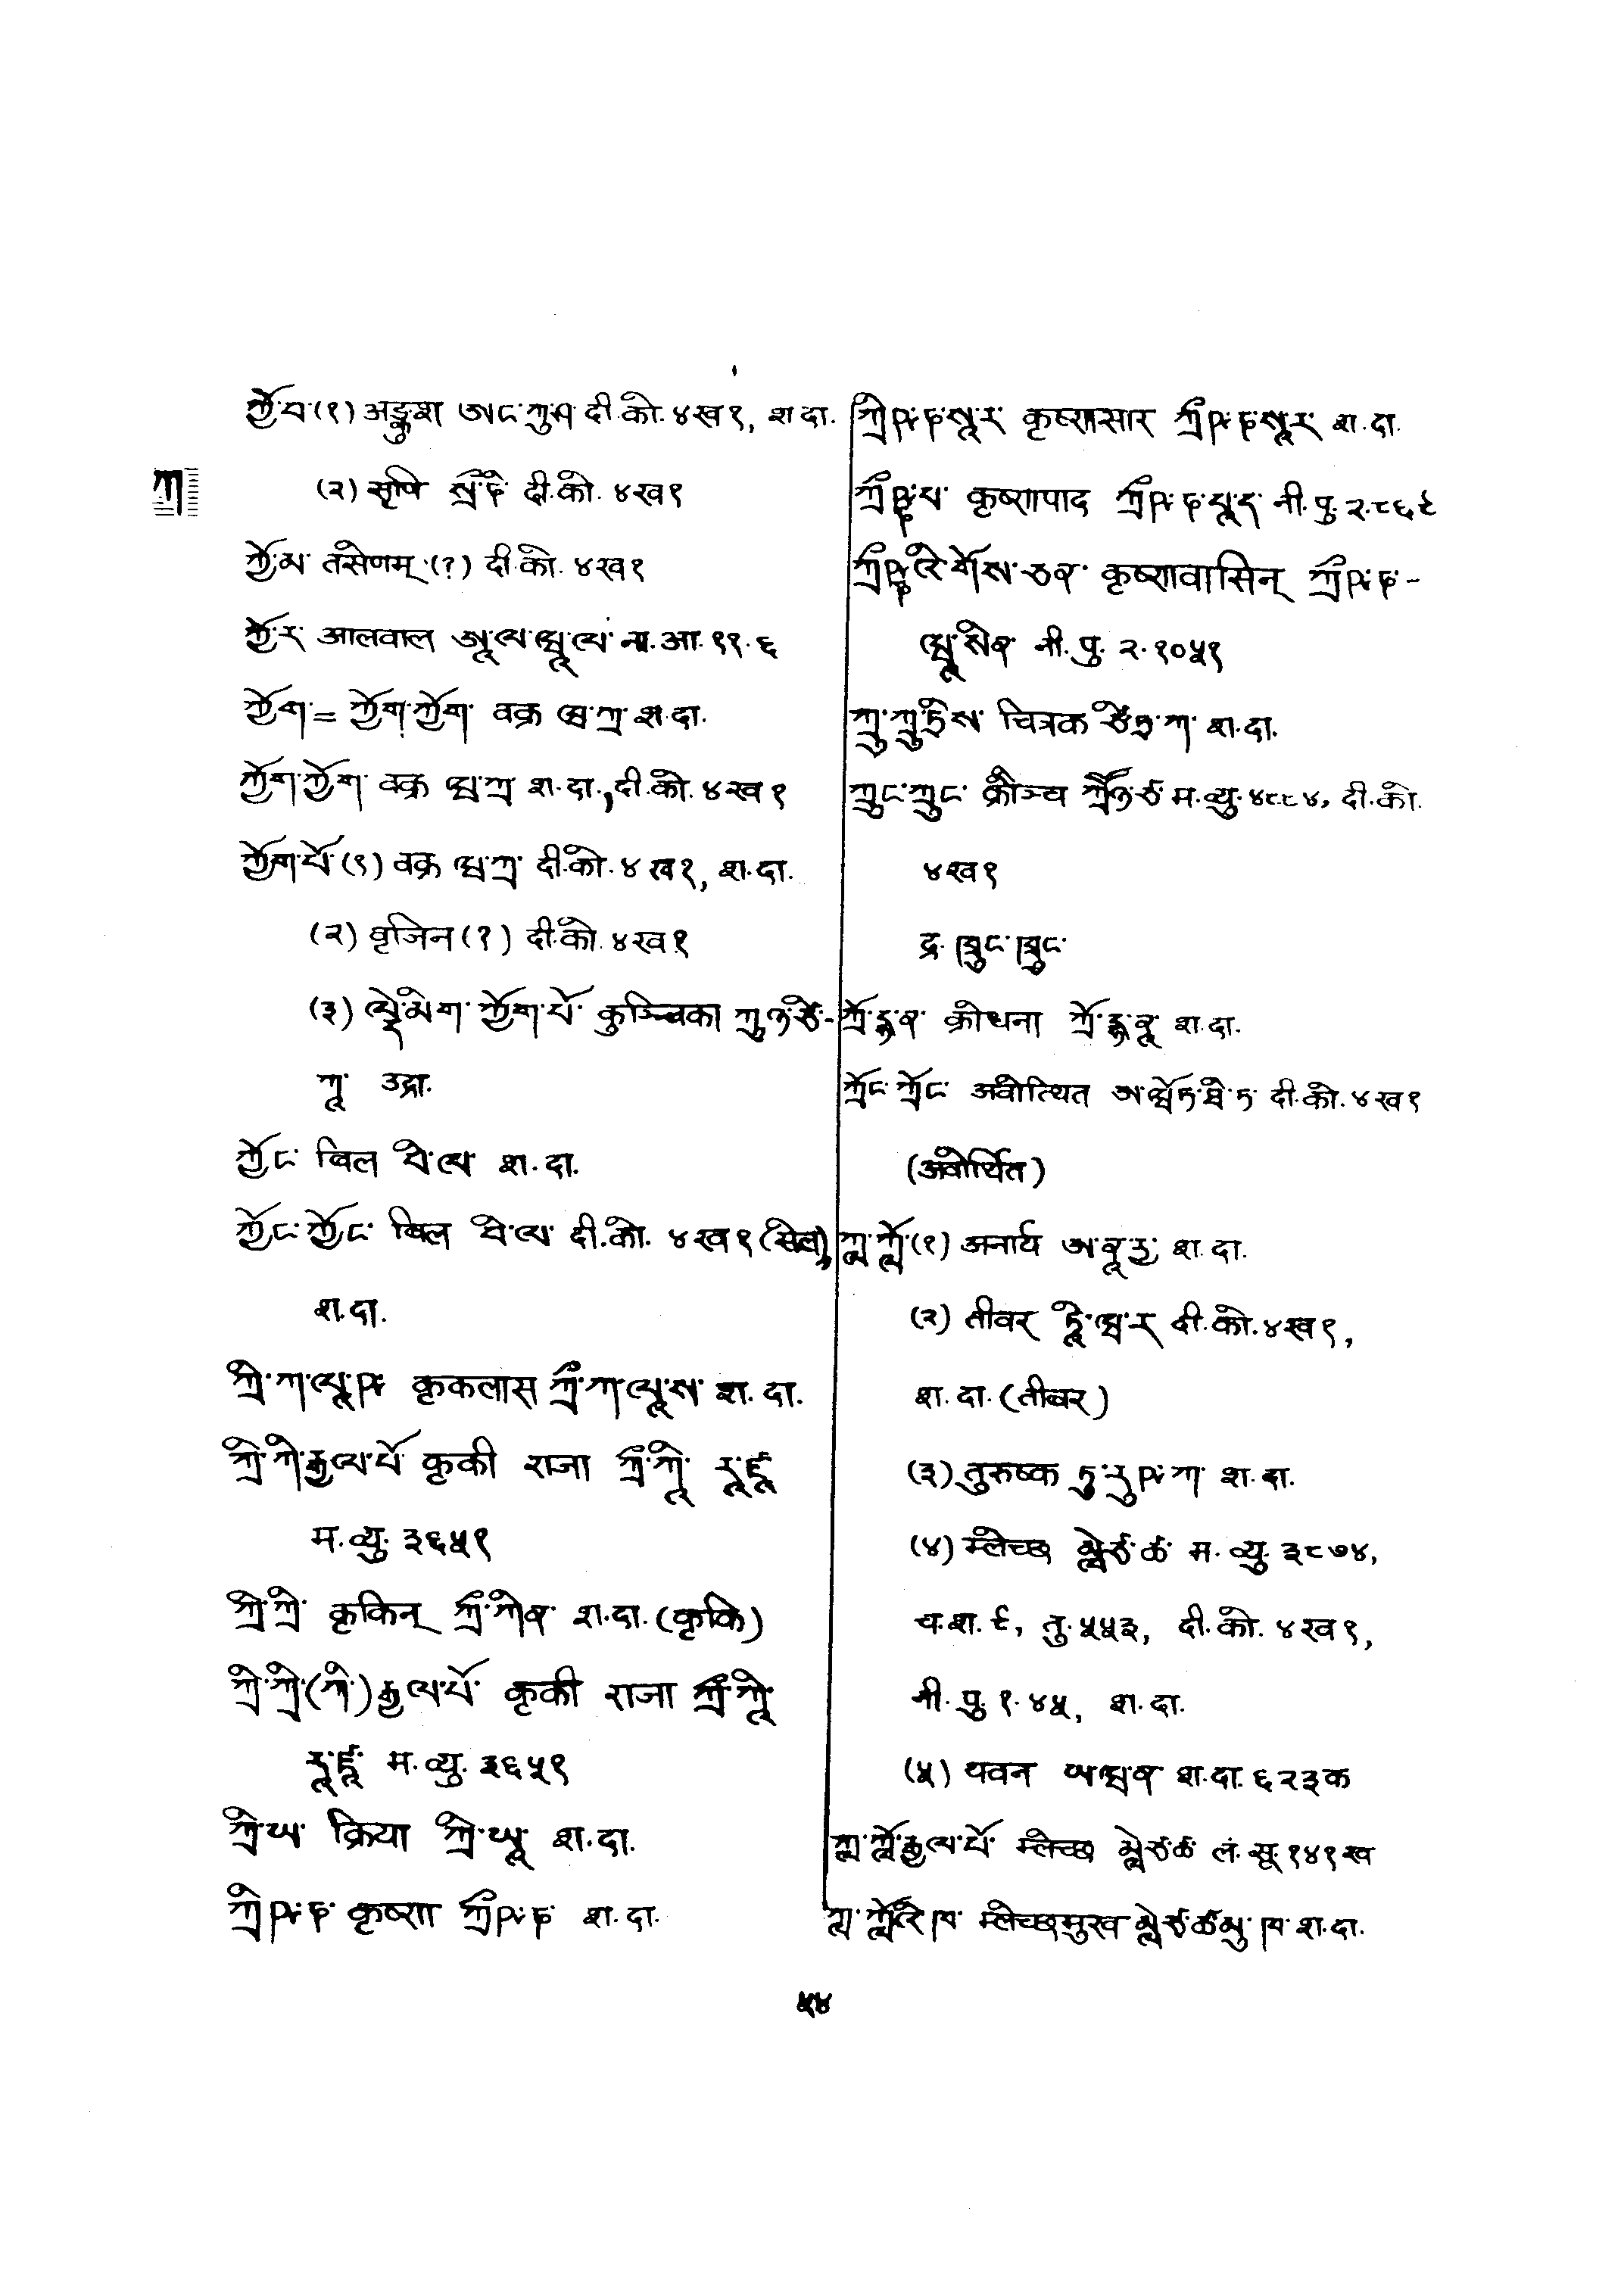 ཀྱོ་བ་(१) अङ्कुश ཨང་ཀུ་ཤ་ दी.को. ४ख१, श.दा.
ཀ
(२) सृणि སྲྀ་ཎི་ दी.को. ४ख१
ཀྱོ་མ་ तसेणम् (?) दी.को. ४ख१
ཀྱོ་ར་ आलवाल ཨཱ་ལ་ཝཱ་ལ་ ना.आ. ११.६
ཀྱོག་ = ཀྱོག་ཀྱོག་ वक्र ཝ་ཀྲ་ श.दा.
ཀྱོག་ཀྱོག་ वक्र ཝ་ཀྲ་ श.दा., दी.को. ४ख१
ཀྱོག་པོ་(१) वक्र ཝ་ཀྲ་ दी.को. ४ख१, श.दा.
(२) वृजिन (?) दी.को. ४ख१
(३) ལྡེ་མིག་ ཀྱོག་པོ་ कुञ्चिका ཀུ་ཉྩི་-
ཀཱ་ उद्रा.
ཀྱོང་ विल བི་ལ་ श.दा.
ཀྱོང་ཀྱོང་ विल བི་ལ་ दी.को. ४ख१ (सिल),
श.दा.
ཀྲི་ཀ་ལཱ་ཥ་ कृकलास ཀྲྀ་ཀ་ལཱ་ས་ श.दा.
ཀྲི་ཀི་རྒྱལ་པོ་ कृकी राजा ཀྲྀ་ཀཱི་ རཱ་ཛཱ་
म.व्यु. ३६५१
ཀྲི་ཀྲི་ कृकिन् ཀྲྀ་ཀིན་ श.दा. (कृकि)
ཀྲི་ཀྲི་(ཀི་)རྒྱལ་པོ་ कृकी राजा ཀྲྀ་ཀཱི་
རཱ་ཛཱ་ म.व्यु. ३६५१
ཀྲི་ཡ་ क्रिया ཀྲི་ཡཱ་ श.दा.
ཀྲི་ཥ་ཎ་ कृष्णा ཀྲྀ་ཥ་ཎ་ श.दा.
ཀྲི་ཥ་ཎ་སཱ་ར་ कृष्णसार ཀྲྀ་ཥ་ཎ་སཱ་ར་ श.दा.
ཀྲྀ་ཥྞ་པ་ कृष्णपाद ཀྲྀ་ཥ་ཎ་པཱ་ད་ नी.पु. २.८६९
ཀྲྀ་ཥྞའི་གོས་ཅན་ कृष्णवासिन् ཀྲྀ་ཥ་ཎ་-
ཝཱ་སིན་ नी.पु. २.१०५१
ཀྲུ་ཀྲུ་ཏྲིས་ चित्रक ཙི་ཏྲ་ཀ་ श.दा.
ཀྲུང་ཀྲུང་ क्रौञ्च ཀྲཽ་ཉྩ་ म.व्यु. ४८८४, दी.को.
४ख१
द्र. ཁྲུང་ཁྲུང་
ཀྲོ་དྷ་ན་ क्रोधना ཀྲོ་དྷ་ནཱ་ श.दा.
ཀྲོང་ཀྲོང་ अवोत्थित दी.को. ४ख१
(अवोर्थित)
ཀླ་ཀློ་(१) अनार्य ཨ་ནཱ་རྱ་ श.दा.
(२) तीवर ཏཱི་ཝ་ར་ दी.को. ४ख१,
श.दा. (तीवर)
(३) तुरुष्क ཏུ་རུ་ཥ་ཀ་ श.दा.
(४) म्लेच्छ མླེ་ཙ་ཚ་ म.व्यु. ३८७४,
च.श. ९, तु. ५५३, दी.को. ४ख१,
नी.पु. १.४५, श.दा.
(५) यवन ཡ་ཝ་ན་ श.दा. ६२३क
ཀླ་ཀློ་རྒྱལ་པོ་ म्लेच्छ མླེ་ཙ་ཚ་ लं.सू. १४१ख
ཀླ་ཀློའི་ཁ་ म्लेच्छमुख མླེ་ཙ་ཚ་མུ་ཁ་ श.दा.
५४